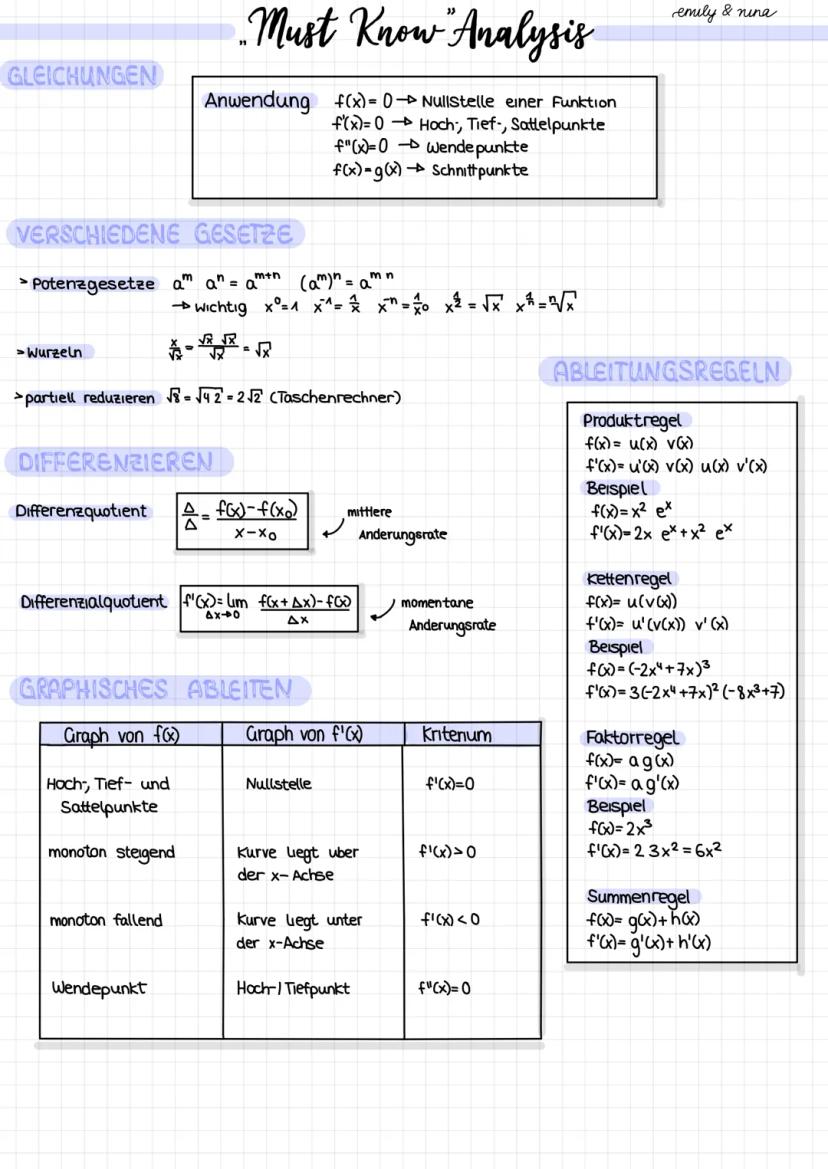 „Must Know" Analysis
emily & nina
GLEICHUNGEN
Anwendung f(x) = 0 → Nullstelle einer Funktion
f'(x) = 0 → Hoch-, Tief-, Sattelpunkte
f''(x) = 0 → Wendepunkte
f(x) = g(x) → Schnittpunkte
VERSCHIEDENE GESETZE
> Potenzgesetze a^m a^n = a^(m+n) (a^m)^n = a^(m n)
→ wichtig x^0 = 1 x^-1 = 1/x x^-n = 1/x^0 x^(1/2) = √x x^(1/n) = n√x
> Wurzeln x/√x = √x √x/√x = √x
> partiell reduzieren √8 = √4 2 = 2√2 (Taschenrechner)
DIFFERENZIEREN
Differenzquotient Δ/Δ = f(x)-f(x₀)/x-x₀ mittlere
Anderungsrate
Differenzialquotient f'(x) = lim Δx→0 f(x+Δx)-f(x)/Δx momentane
Anderungsrate
GRAPHISCHES ABLEITEN
Graph von f(x) Graph von f'(x) Kriterium
Hoch-, Tief- und Nullstelle f'(x)=0
Sattelpunkte
monoton steigend Kurve liegt uber f'(x)>0
der x-Achse
monoton fallend Kurve liegt unter f'(x)<0
der x-Achse
Wendepunkt Hoch-/Tiefpunkt f''(x)=0
ABLEITUNGSREGELN
Produktregel
f(x) = u(x) v(x)
f'(x) = u'(x) v(x) u(x) v'(x)
Beispiel
f(x) = x² e^x
f'(x) = 2x e^x + x² e^x
Kettenregel
f(x) = u(v(x))
f'(x) = u'(v(x)) v'(x)
Beispiel
f(x) = (-2x⁴+7x)³
f'(x) = 3(-2x⁴+7x)² (-8x³+7)
Faktorregel
f(x) = a g(x)
f'(x) = a g'(x)
Beispiel
f(x) = 2x³
f'(x) = 2 3x² = 6x²
Summenregel
f(x) = g(x)+h(x)
f'(x) = g'(x)+h'(x)